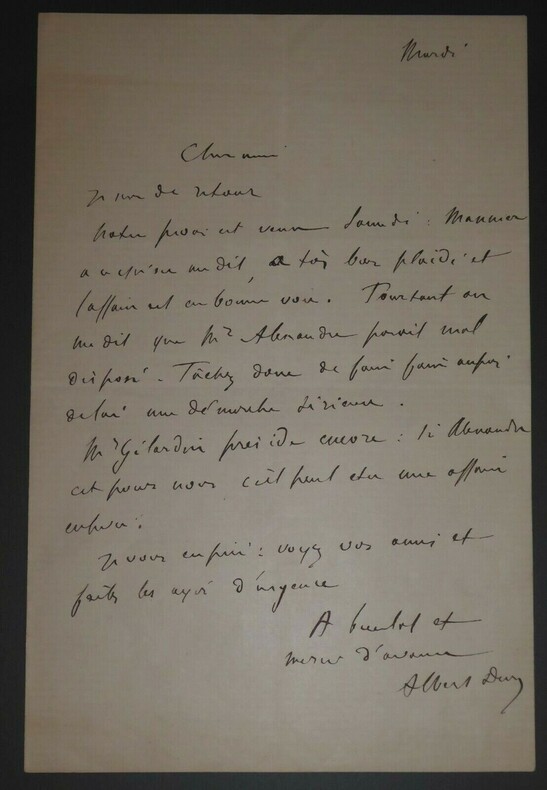 Mardi
Cher ami
Je suis de retour
Notre procès est venu Samedi : Manuner
a ce qu'on me dit, a très bien plaidé et
l'affaire est en bonne voie. Pourtant on
me dit que Mr Alexandre paroit mal
disposé. Tâchez donc de faire faire auprès
de lui une démarche sérieuse.
Mr Gilardin préside encore : si Alexandre
est pour nous c'est peut etre une affaire
Je vous en prie : voyez vos amis et
faites les agir d'urgence
A bientot et
merci d'avance
Albert Dury